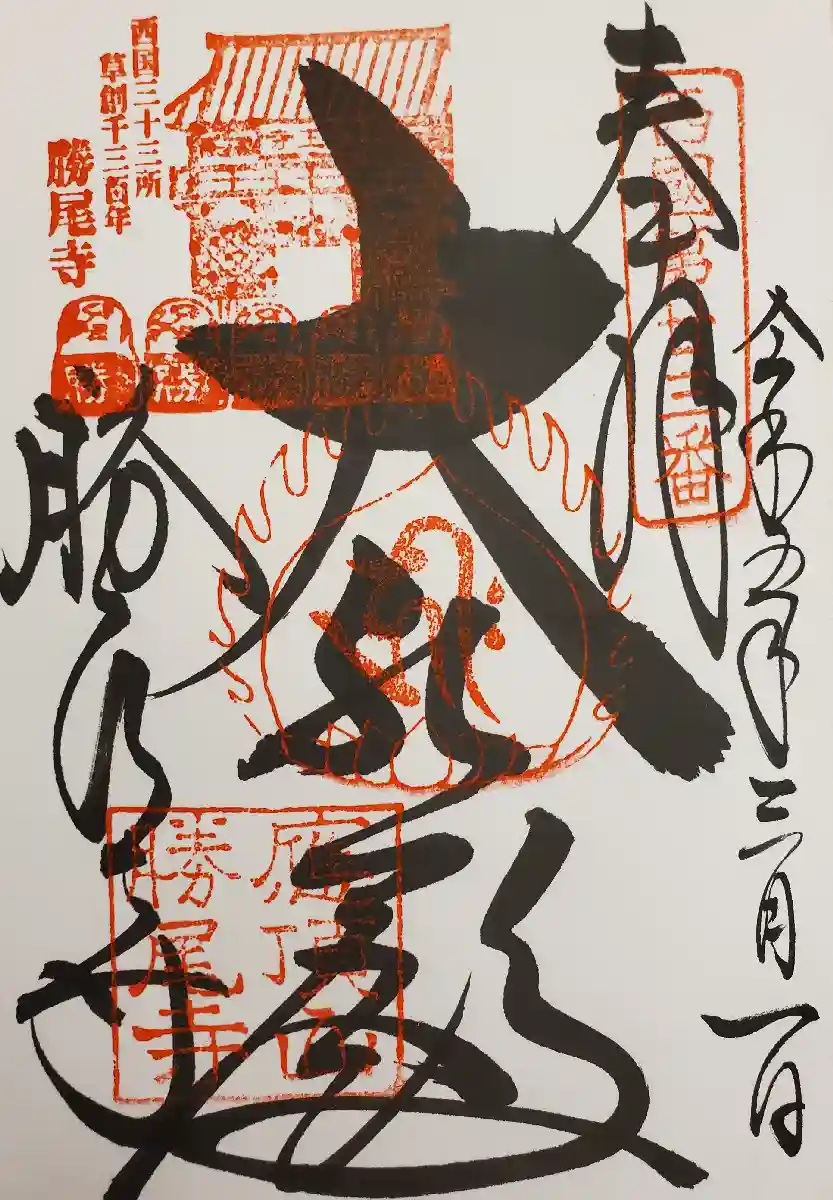 令和五年三月一日
奉拝
西國第廿三番
大悲殿
勝尾寺
西国三十三所
草創千三百年
勝尾寺
勝
勝
應頂山
勝尾寺